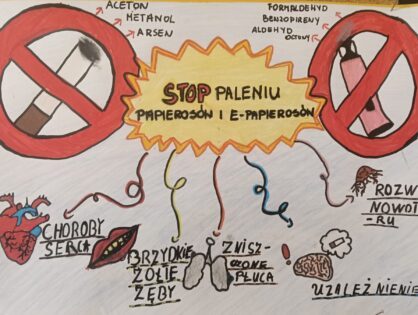 ACETON
METANOL
ARSEN
FORMALDEHYD
BENZOPIRENY
ALDEHYD
OCTOWY
STOP PALENIU
PAPIEROSÓW I E-PAPIEROSÓW
CHOROBY
SERCA
BRZYDKIE
ŻÓŁTE
ZĘBY
ZNISZ-
CZONE
PŁUCA
UZALEŻNIENIE
ROZW
NOWOT-
RU